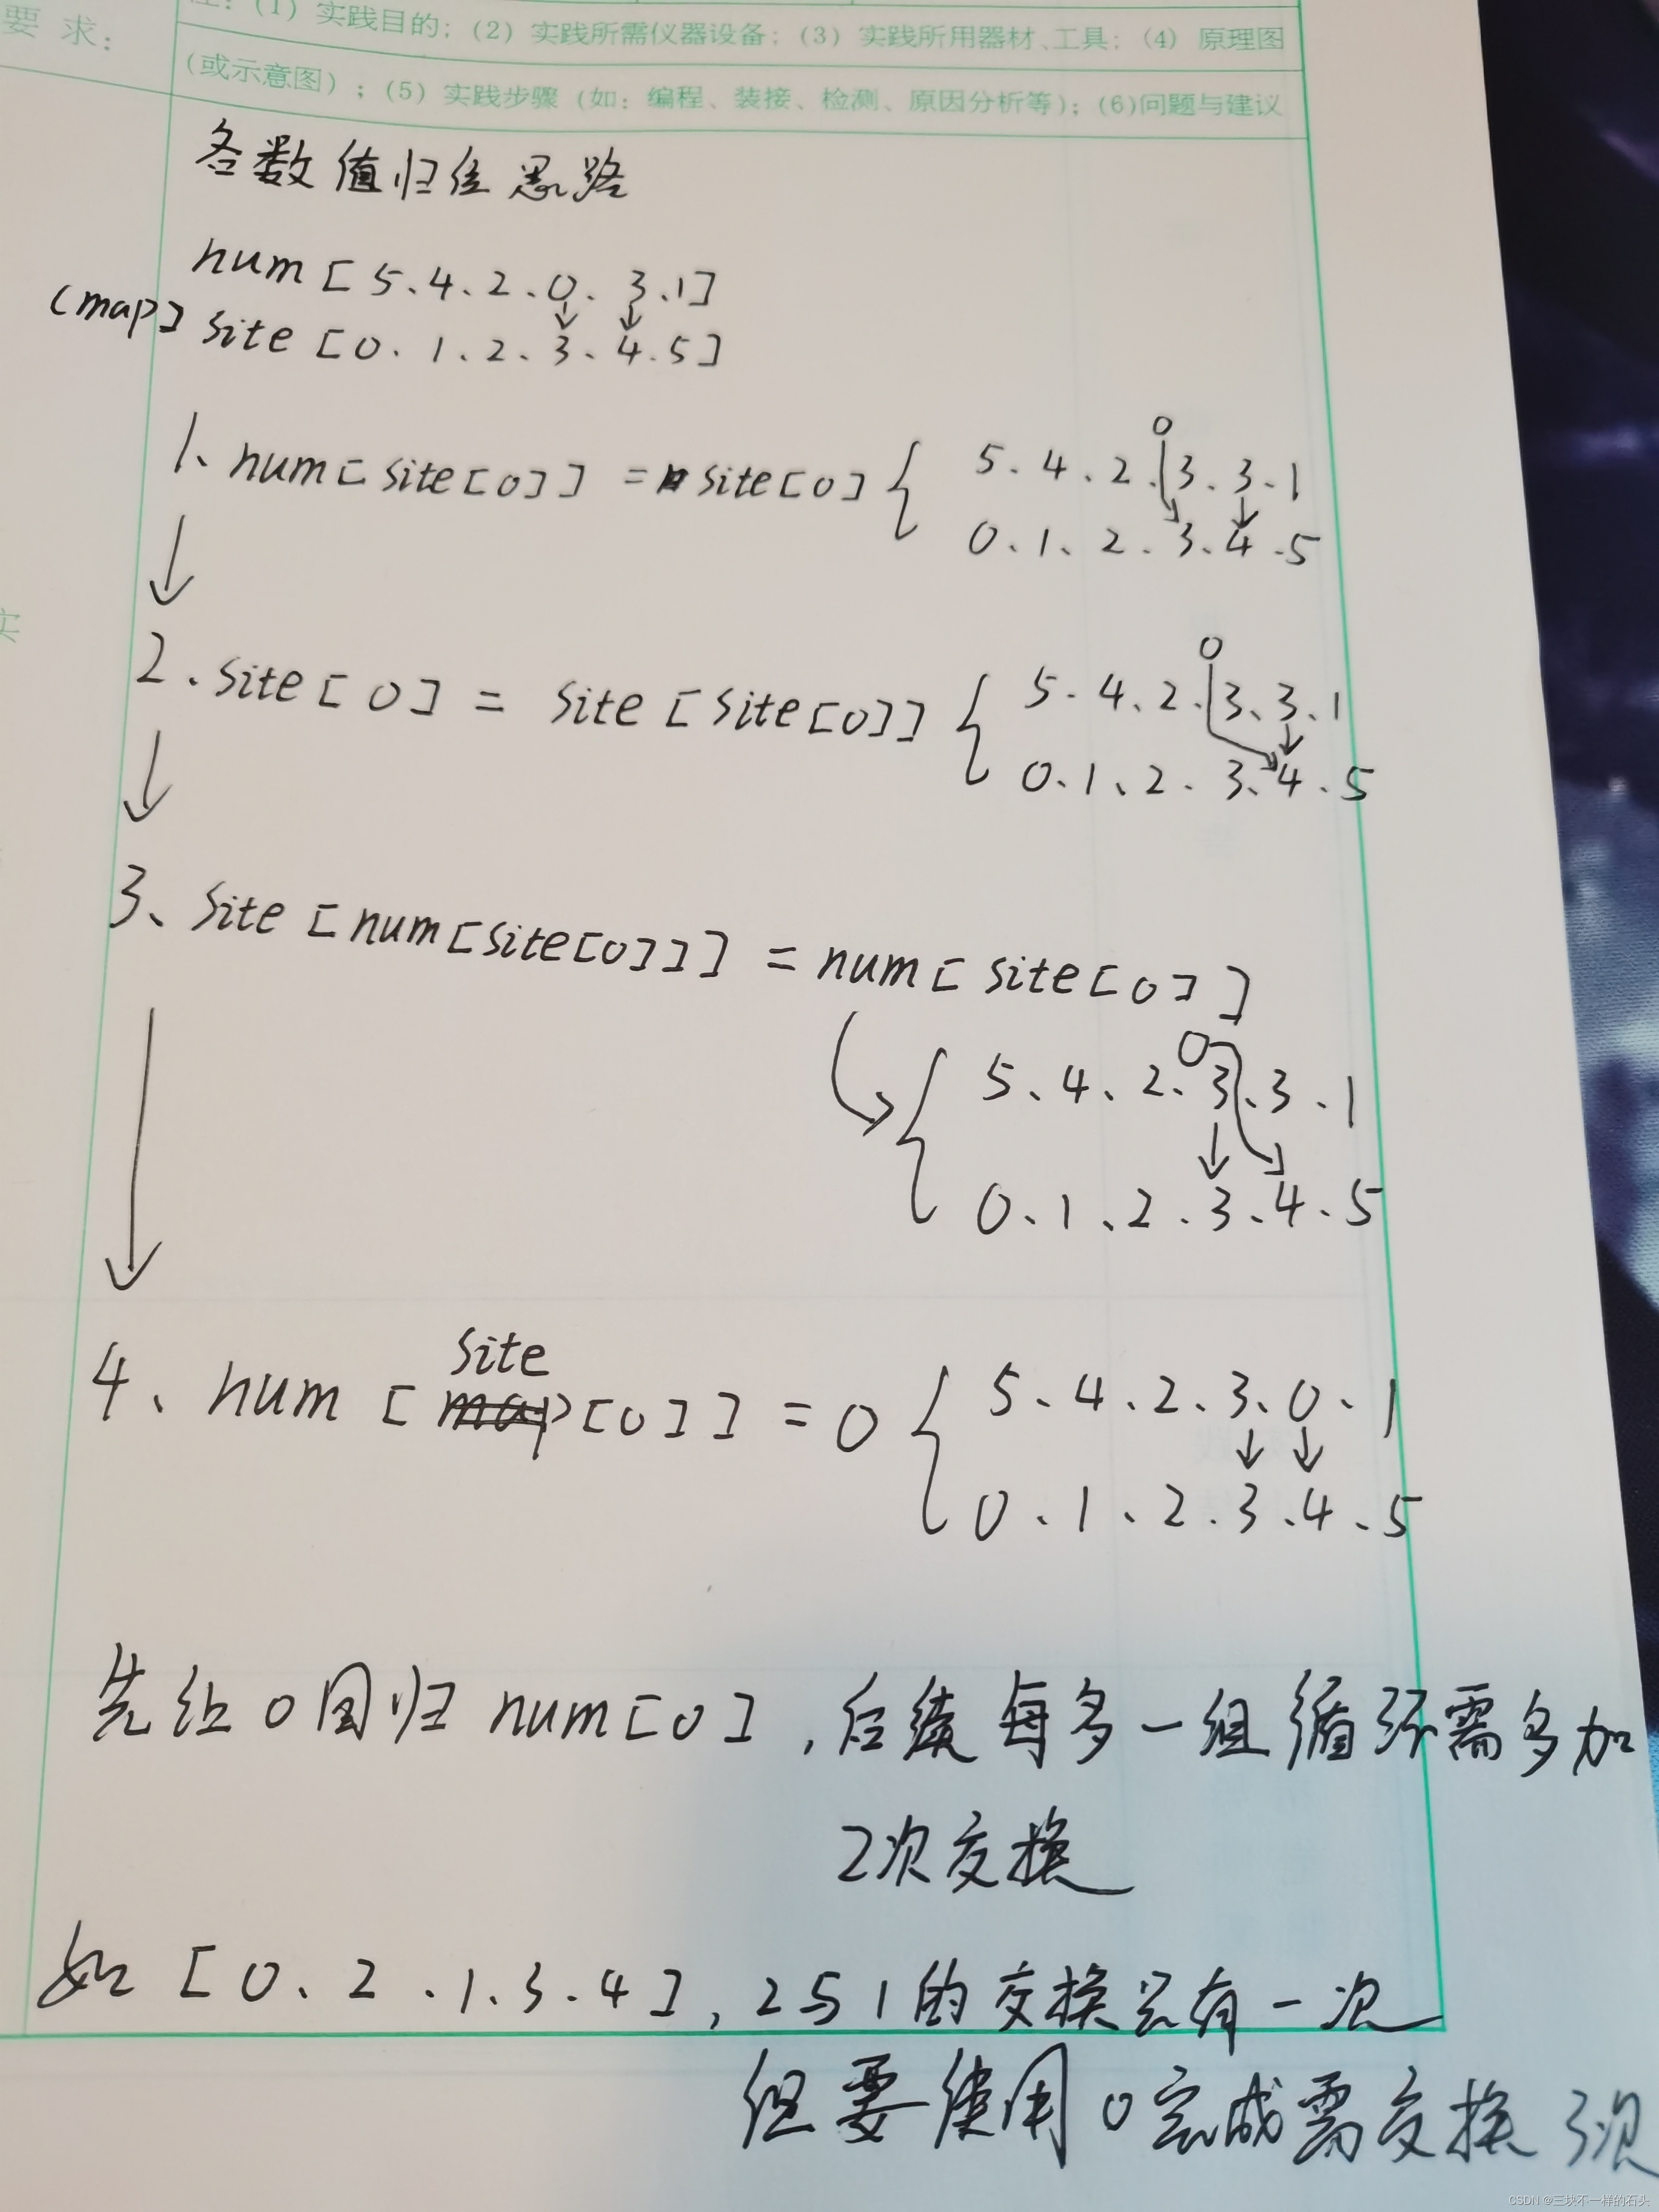 要 求:
注:(1) 实践目的; (2) 实践所需仪器设备; (3) 实践所用器材、工具; (4) 原理图
(或示意图) ; (5) 实践步骤 (如: 编程、装接、检测、原因分析等); (6)问题与建议
各数值归位思路
num [ 5、4、2、0、3、1]
(map] site [0、1、2、3、4、5]
0
1、num[site[0]] = site[0] { 5、4、2、3、3、1
0、1、2、3、4、5
0
2、site[0] = site[site[0]] { 5、4、2、3、3、1
0、1、2、3、4、5
3、site[num[site[0]]] = num[site[0]]
0
{ 5、4、2、3、3、1
0、1、2、3、4、5
site
4、num [ map[0]] = 0 { 5、4、2、3、0、1
0、1、2、3、4、5
实
先让0回归 num[0],后续每多一组循环需多加
2次交换
如 [0、2、1、3、4], 2与1的交换只有一次
但要使用0完成需交换3次
CSDN @三块不一样的石头